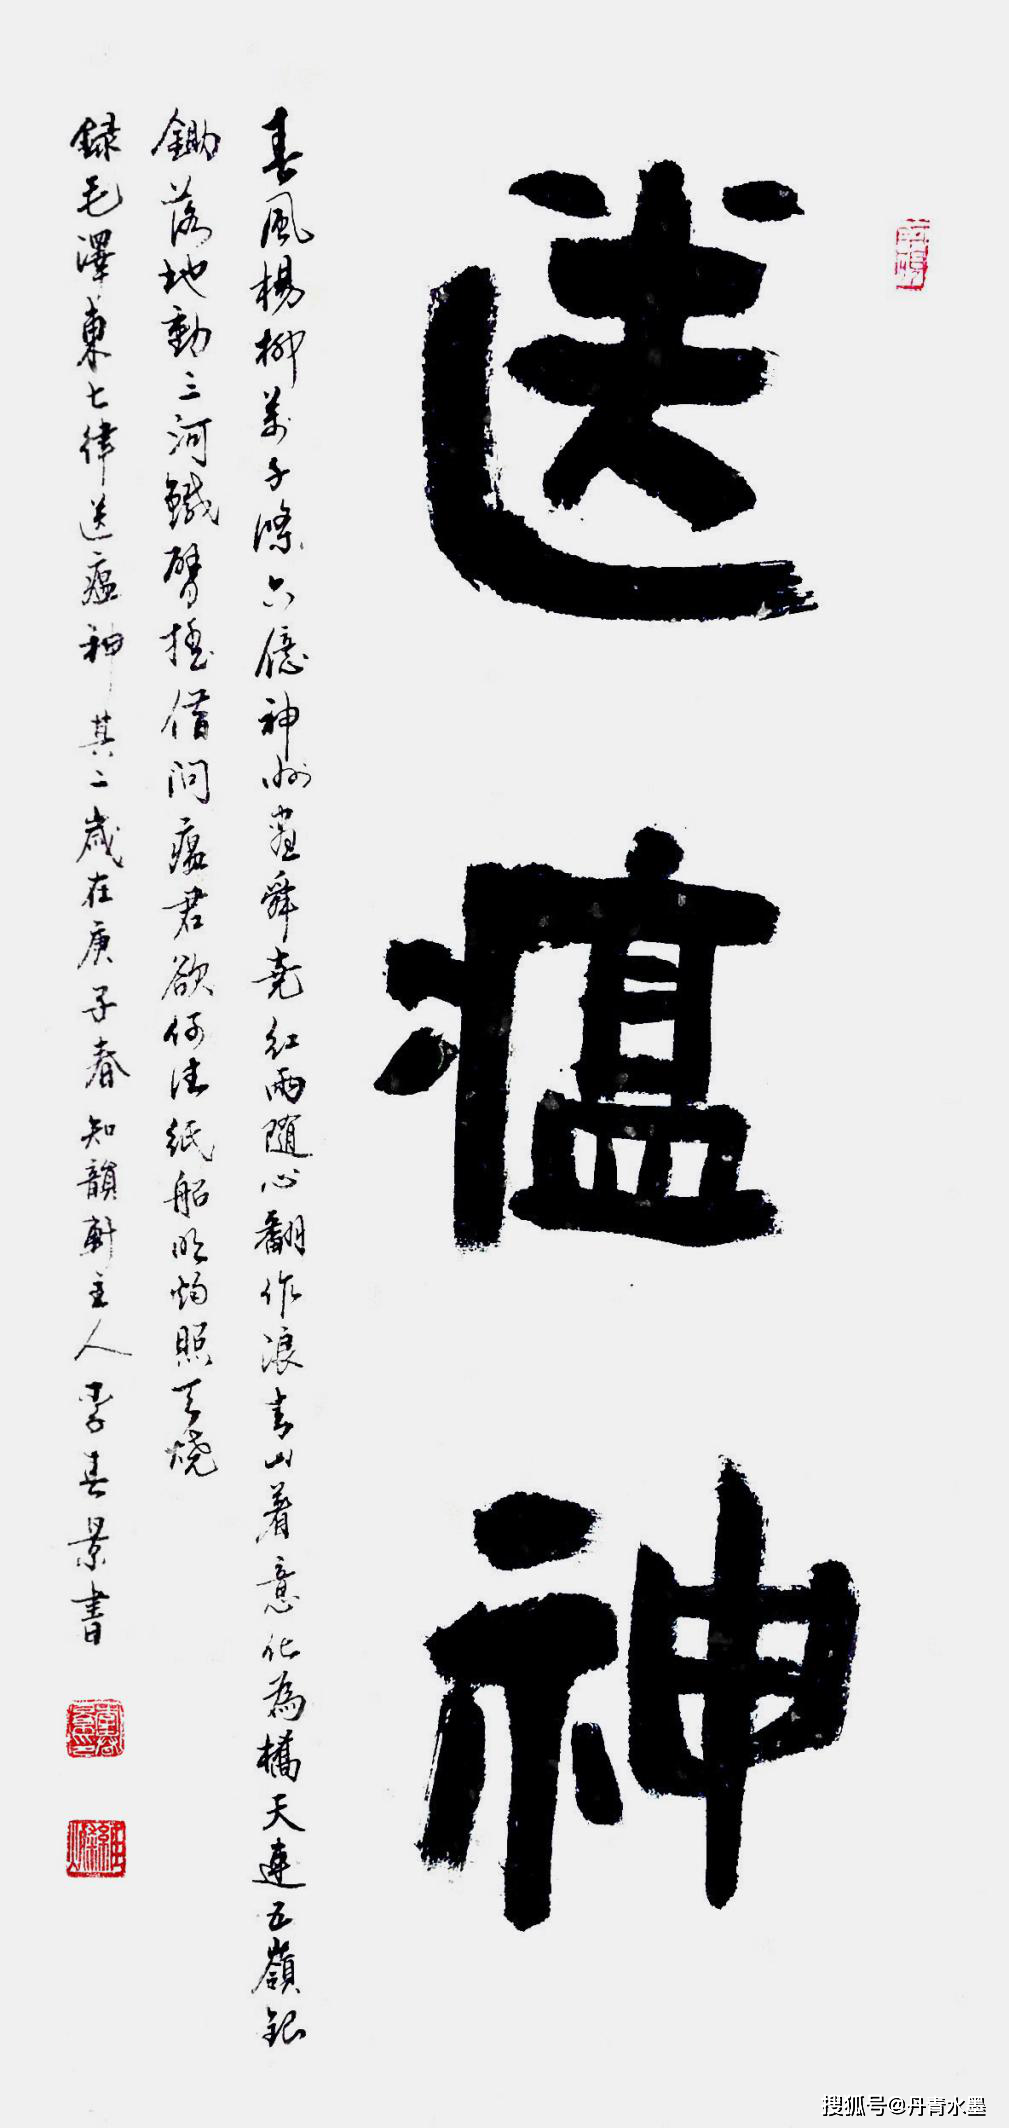 送瘟神
春風楊柳萬千條六億神州盡舜堯紅雨隨心翻作浪青山着意化為橋天連五嶺銀
鋤落地動三河鐵臂搖借問瘟君欲何往紙船明燭照天燒
録毛澤東七律送瘟神其二歲在庚子春知韻軒主人李春景書
搜狐号@丹青水墨